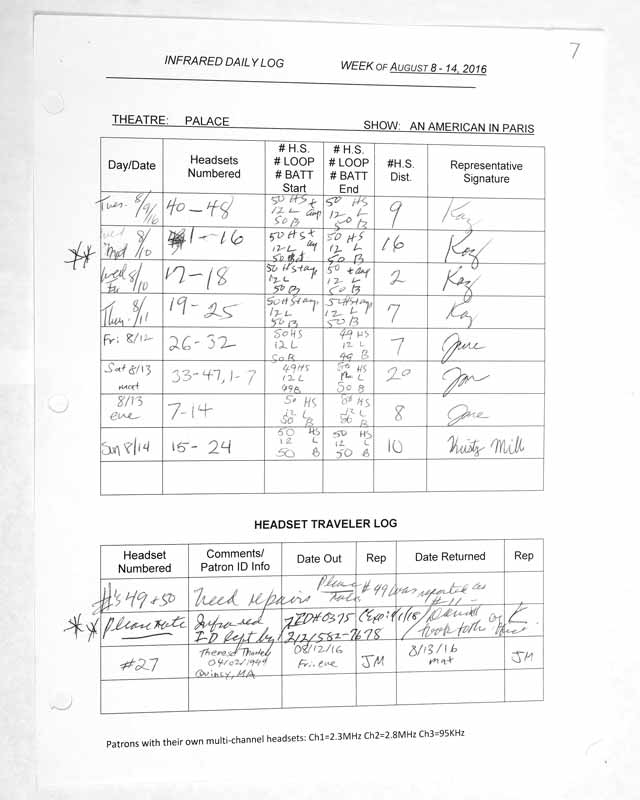 7
INFRARED DAILY LOG WEEK OF AUGUST 8 - 14, 2016
THEATRE: PALACE SHOW: AN AMERICAN IN PARIS
Day/Date Headsets Numbered # H.S. # LOOP # BATT Start # H.S. # LOOP # BATT End #H.S. Dist. Representative Signature
Tues. 8/9/16 40-48 50 HS 12 L 50 B 50 HS 12 L 50 B 9 Kaz
** Wed Mat 8/10 1-16 50 HS 12 L 50 HS 12 L 50 B 16 Kaz
Wed 8/10 17-18 50 HS 12 L 50 B 50 12 L 50 B 2 Kaz
Thur. 8/11 19-25 50 HS 12 L 50 B 50 HS 12 L 50 B 7 Kaz
Fri 8/12 26-32 50 HS 12 L 50 B 49 HS 12 L 49 B 7 June
Sat 8/13 mat 33-47, 1-7 49 HS 12 L 49 B 50 HS 12 L 50 B 20
8/13 eve 7-14 50 HS 12 L 50 B 50 HS 12 L 50 B 8 June
Sun 8/14 15-24 50 HS 12 L 50 B 50 HS 12 L 50 B 10 Mill
HEADSET TRAVELER LOG
Headset Numbered Comments/ Patron ID Info Date Out Rep Date Returned Rep
#'s 49 + 50 need repairs Please #49 was reported
** Please Note Infrared I-D left by 212/582-7678 took
#27 Theresa 04/02/1949 Quincy, MA 08/12/16 Fri. eve JM 8/13/16 mat JM
Patrons with their own multi-channel headsets: Ch1=2.3MHz Ch2=2.8MHz Ch3=95KHz